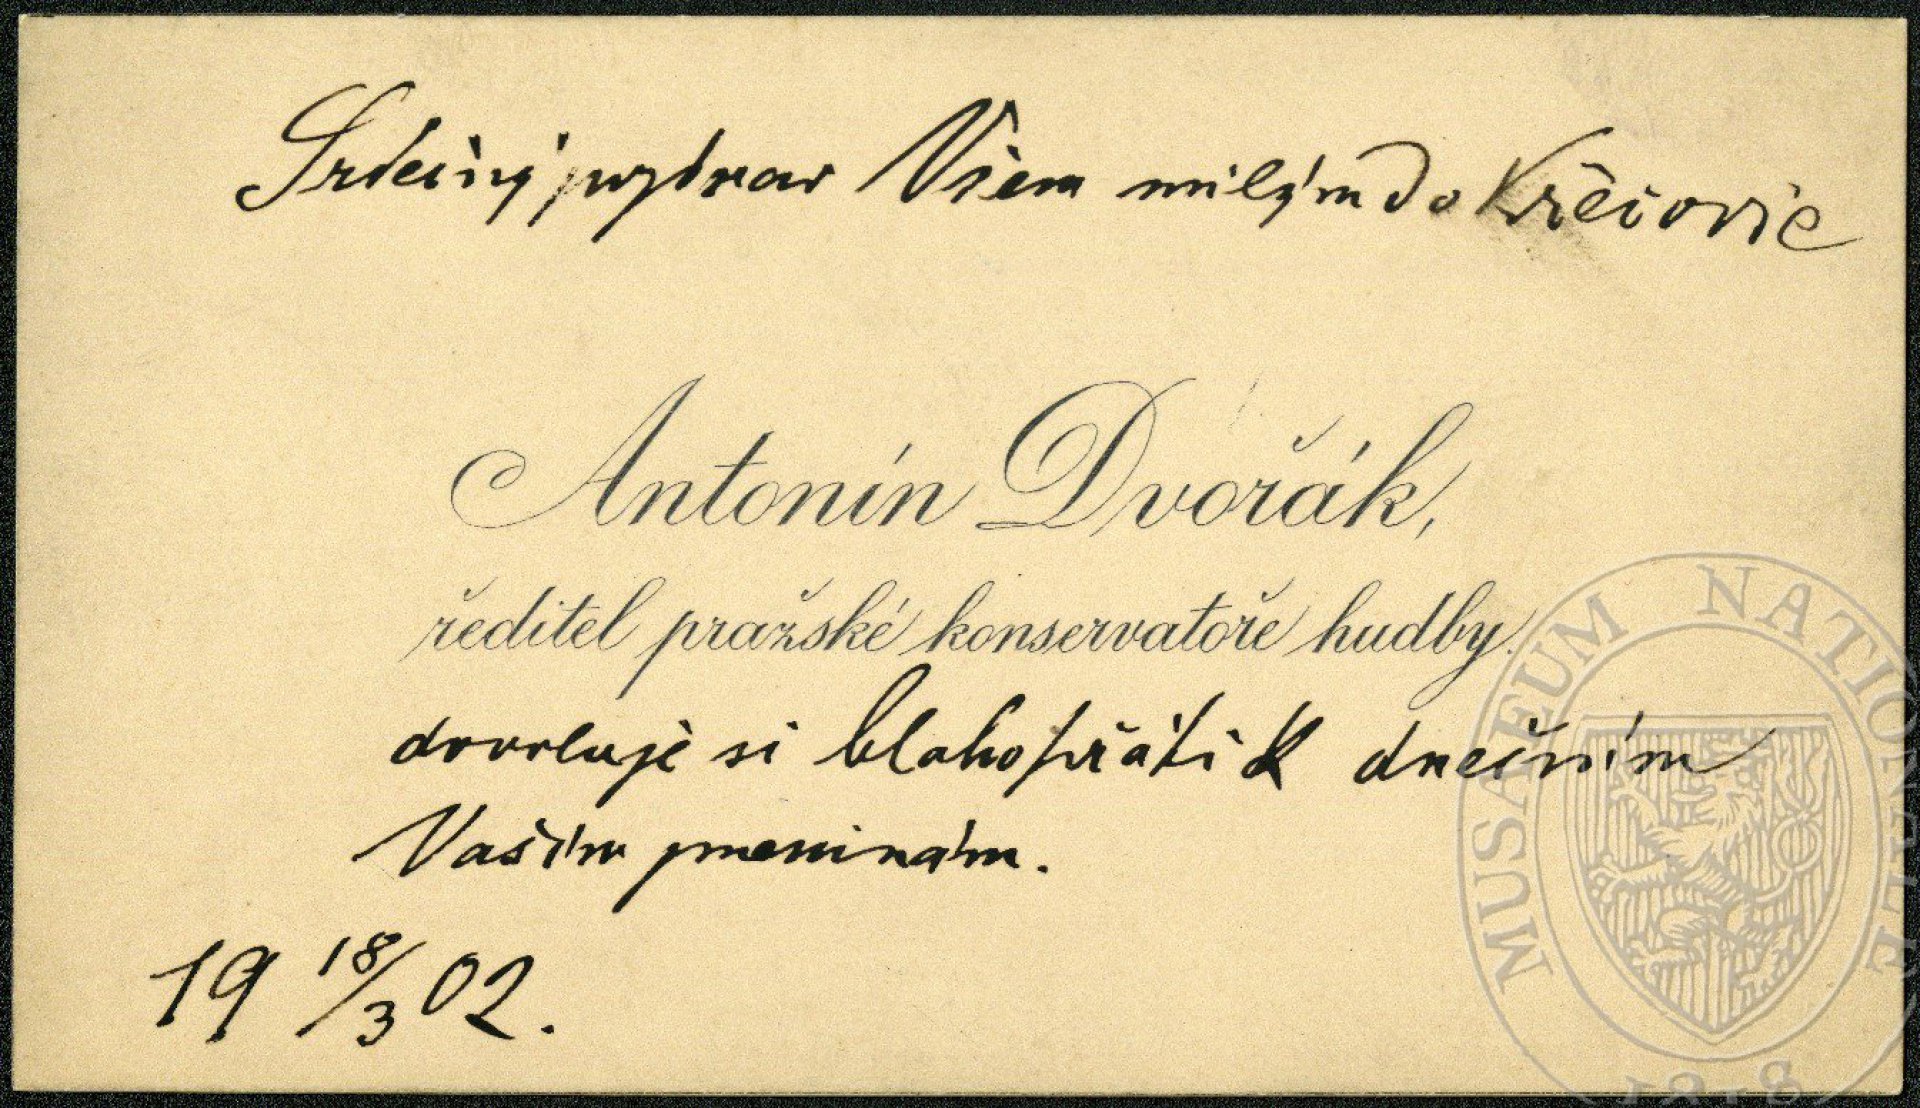 Srdečný pozdrav Všem milým do Křečovic
Antonín Dvořák,
ředitel pražské konservatoře hudby.
dovoluje si blahopřáti k dnešním
Vaším jmeninám.
19 18/3 02.
MUSAEUM NATIONALE
1818